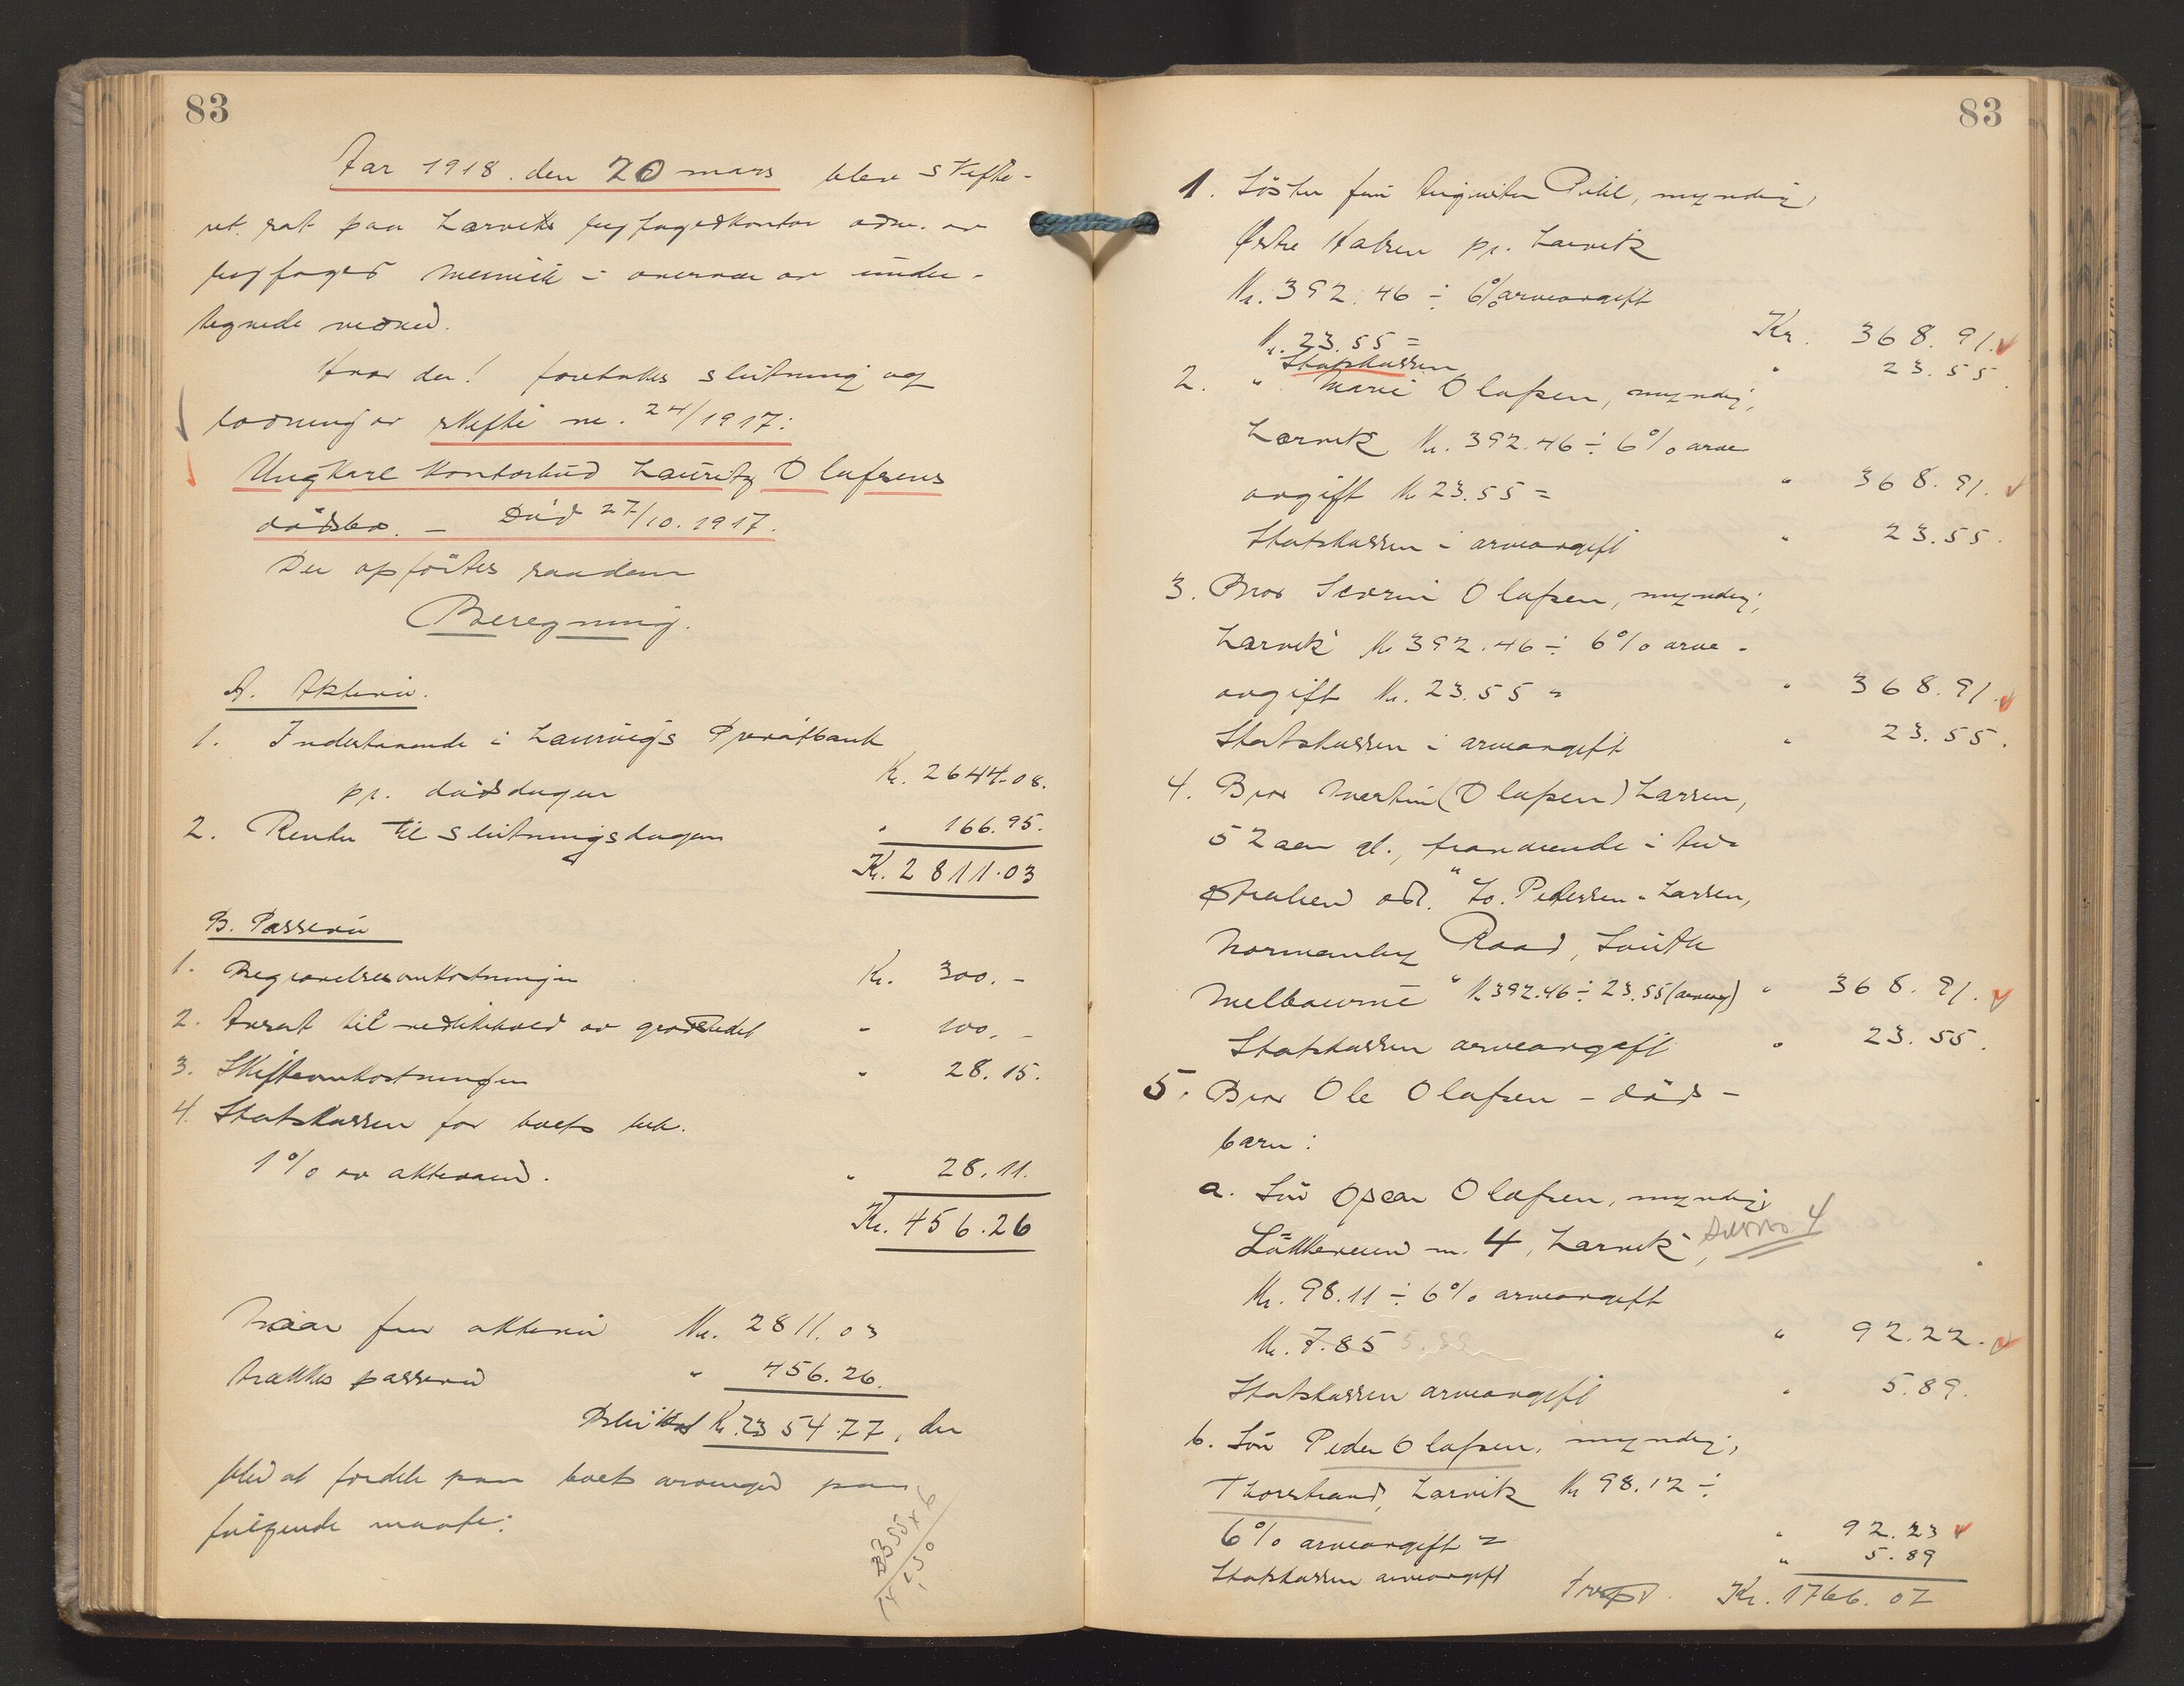 83
Aar 1918. den 20 mars blev skifte-
ret sat paa Larviks byfogedkontor adm. av
byfoged i overvær av under-
tegnede vidner.
Hvor da! foretokes slutning og
lodning av skifte nr. 24/1917:
Ungkarl kontorbud Lauritz Olafsens
dödsbo. – Död 27/10. 1917.
Der opförtes saadan
Beregning.
A. Aktiva.
1. Indestaaende i Laurvigs Privatbank
pr. dödsdagen Kr. 2644.08.
2. Renter til slutningsdagen " 166.95.
Kr. 2811.03
B. Passiva
1. Begravelsesomkostninger Kr. 300.-
2. Avsat til vedlikehold av gravstedet " 100.-
3. Skifteomkostninger " 28.15.
4. Statskassen for boets beh.
1% av aktivaen. " 28.11.
Kr. 456.26
Naar fra aktiva Kr. 2811.03
trækkes passiva " 456.26.
Kr. 2354.77, der
blev at fordele paa boets arvinger paa
følgende maate:
2355 x 6
14130
83
1. Söster fru Pihl, myndig,
Østre Halsen pr. Larvik
Kr. 392.46 ÷ 6% arveavgift
Kr. 23.55 = Kr. 368.91.
Statskassen " 23.55.
2. " Marie Olafsen, myndig,
Larvik Kr. 392.46 ÷ 6% arve
avgift Kr 23.55 = " 368.91.
Statskassen i arveavgift " 23.55.
3. Bror Severin Olafsen, myndig,
Larvik Kr 392.46 ÷ 6% arve-
avgift Kr. 23.55 = " 368.91.
Statskassen i arveavgift " 23.55.
4. Bror Martin (Olafsen) Larsen,
52 aar gl., fraværende i Au-
stralien adr. "Jo. Pedersen-Larsen,
Normanby Road, South
Melbourne" Kr. 392.46 ÷ 23.55 (arveavg) " 368.91.
Statskassen arveavgift " 23.55.
5. Bror Ole Olafsen – död –
barn:
a. Sön Oscar Olafsen, myndig,
nr. 4, Larvik,
Kr. 98.11 ÷ 6% arveavgift
Kr. 7.85 5.89 " 92.22.
Statskassen arveavgift " 5.89.
b. Sön Peder Olafsen, myndig,
Thorstrand, Larvik Kr 98.12 ÷
6% arveavgift = " 92.23
Statskassen arveavgift " 5.89
Kr. 1766.07